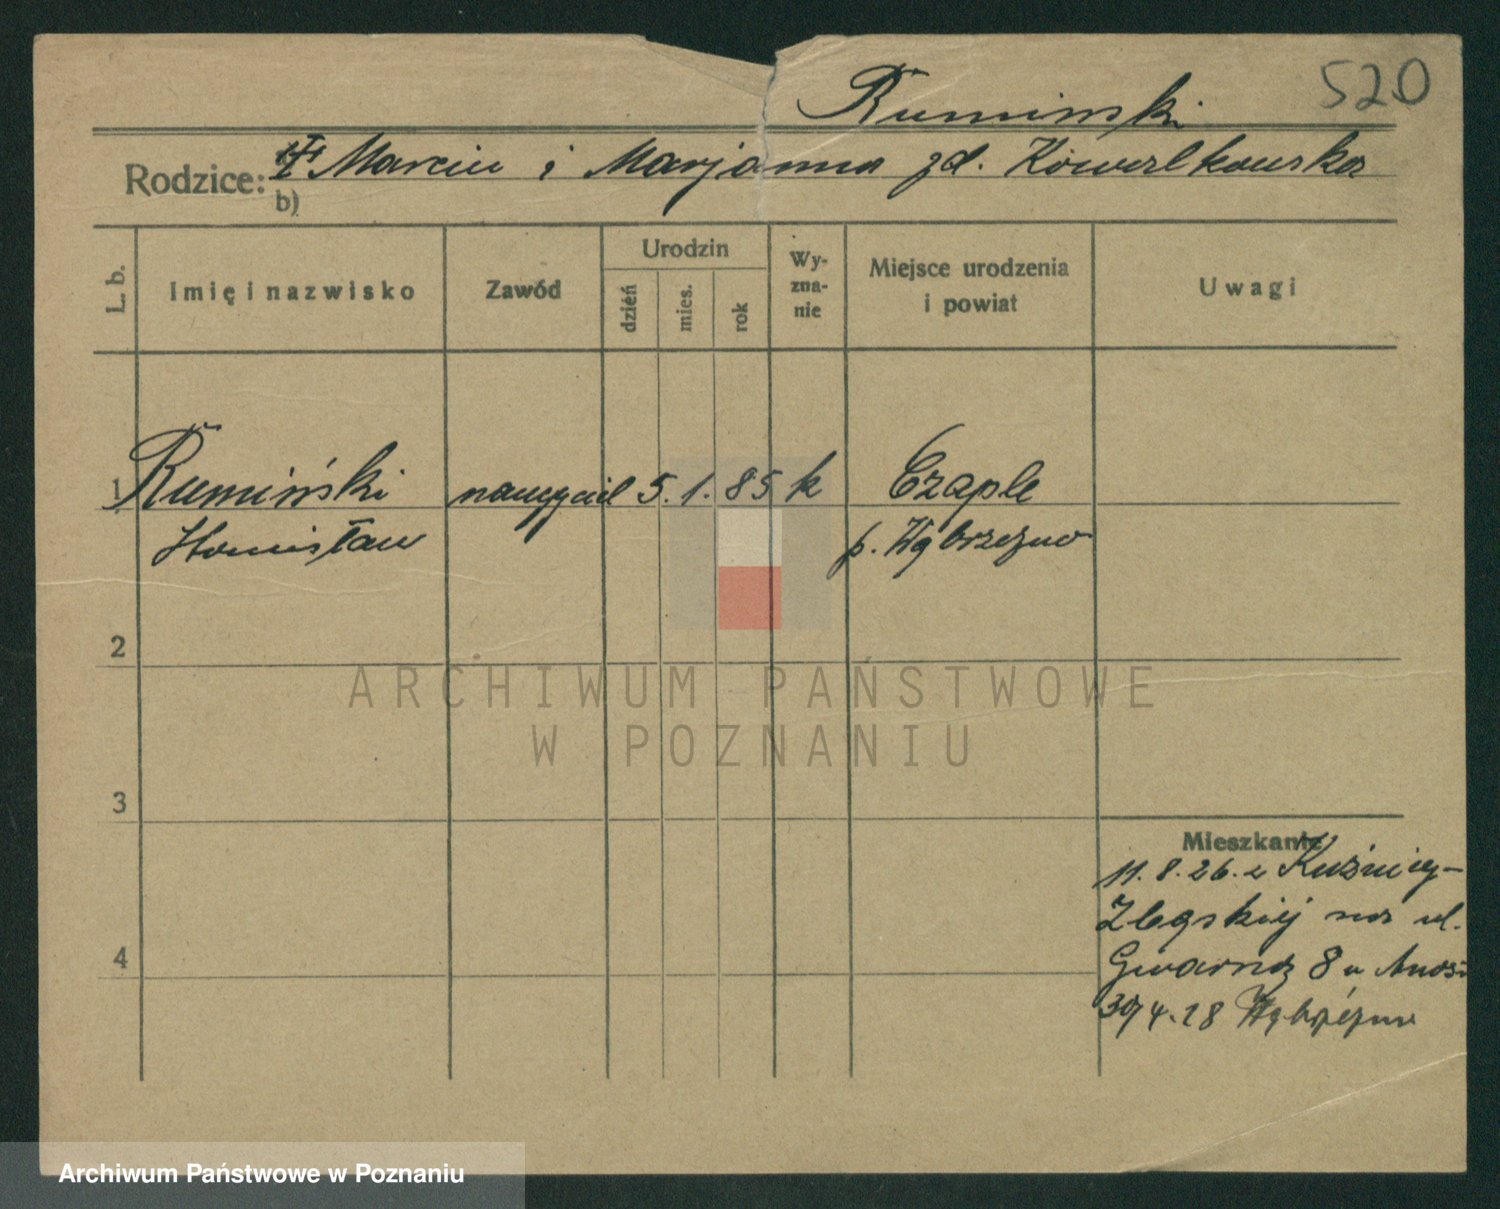 520
Rumiński
Rodzice: Marcin i Marjanna zd. Kowalkowska
b)
L. b.
Imię i nazwisko
Zawód
Urodzin
dzień
mies.
rok
Wy-
zna-
nie
Miejsce urodzenia
i powiat
Uwagi
1 Rumiński nauczyciel 5. 1. 85 k Czaple
Stanisław p. Wąbrzeźno
2
ARCHIWUM PAŃSTWOWE
W POZNANIU
3
Mieszkanie
11. 8. 26. z Kuźnicy-
Zbąskiej na ul.
4
Gwarna 8 u
30/4. 28 Wąbrzeźno
Archiwum Państwowe w Poznaniu